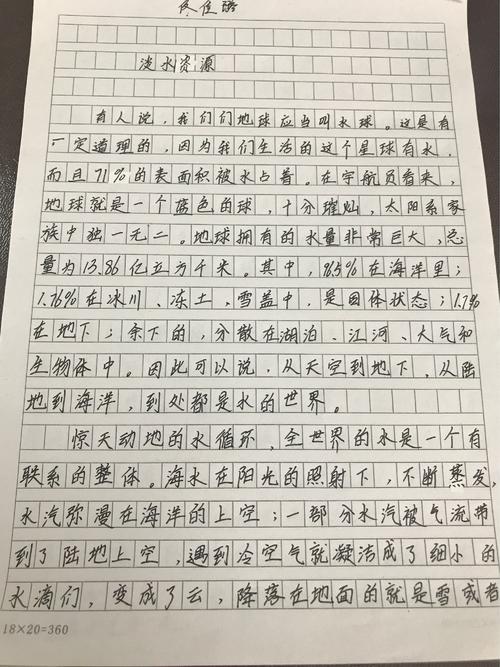 淡水资源
有人说，我们们地球应当叫水球。这是有
一定道理的，因为我们生活的这个星球有水，
而且71%的表面积被水占着。在宇航员看来，
地球就是一个蓝色的球，十分璀灿，太阳系家
族中独一无二。地球拥有的水量非常巨大，总
量为13.86亿立方千米。其中，96.5%在海洋里；
1.76%在冰川、冻土、雪盖中，是固体状态；1.7%
在地下；余下的，分散在湖泊、江河、大气和
生物体中。因此可以说，从天空到地下，从陆
地到海洋，到处都是水的世界。
惊天动地的水循环，全世界的水是一个有
联系的整体。海水在阳光的照射下，不断蒸发，
水汽弥漫在海洋的上空；一部分水汽被气流带
到了陆地上空，遇到冷空气就凝洁成了细小的
水滴们，变成了云，降落在地面的就是雪或者
18×20=360